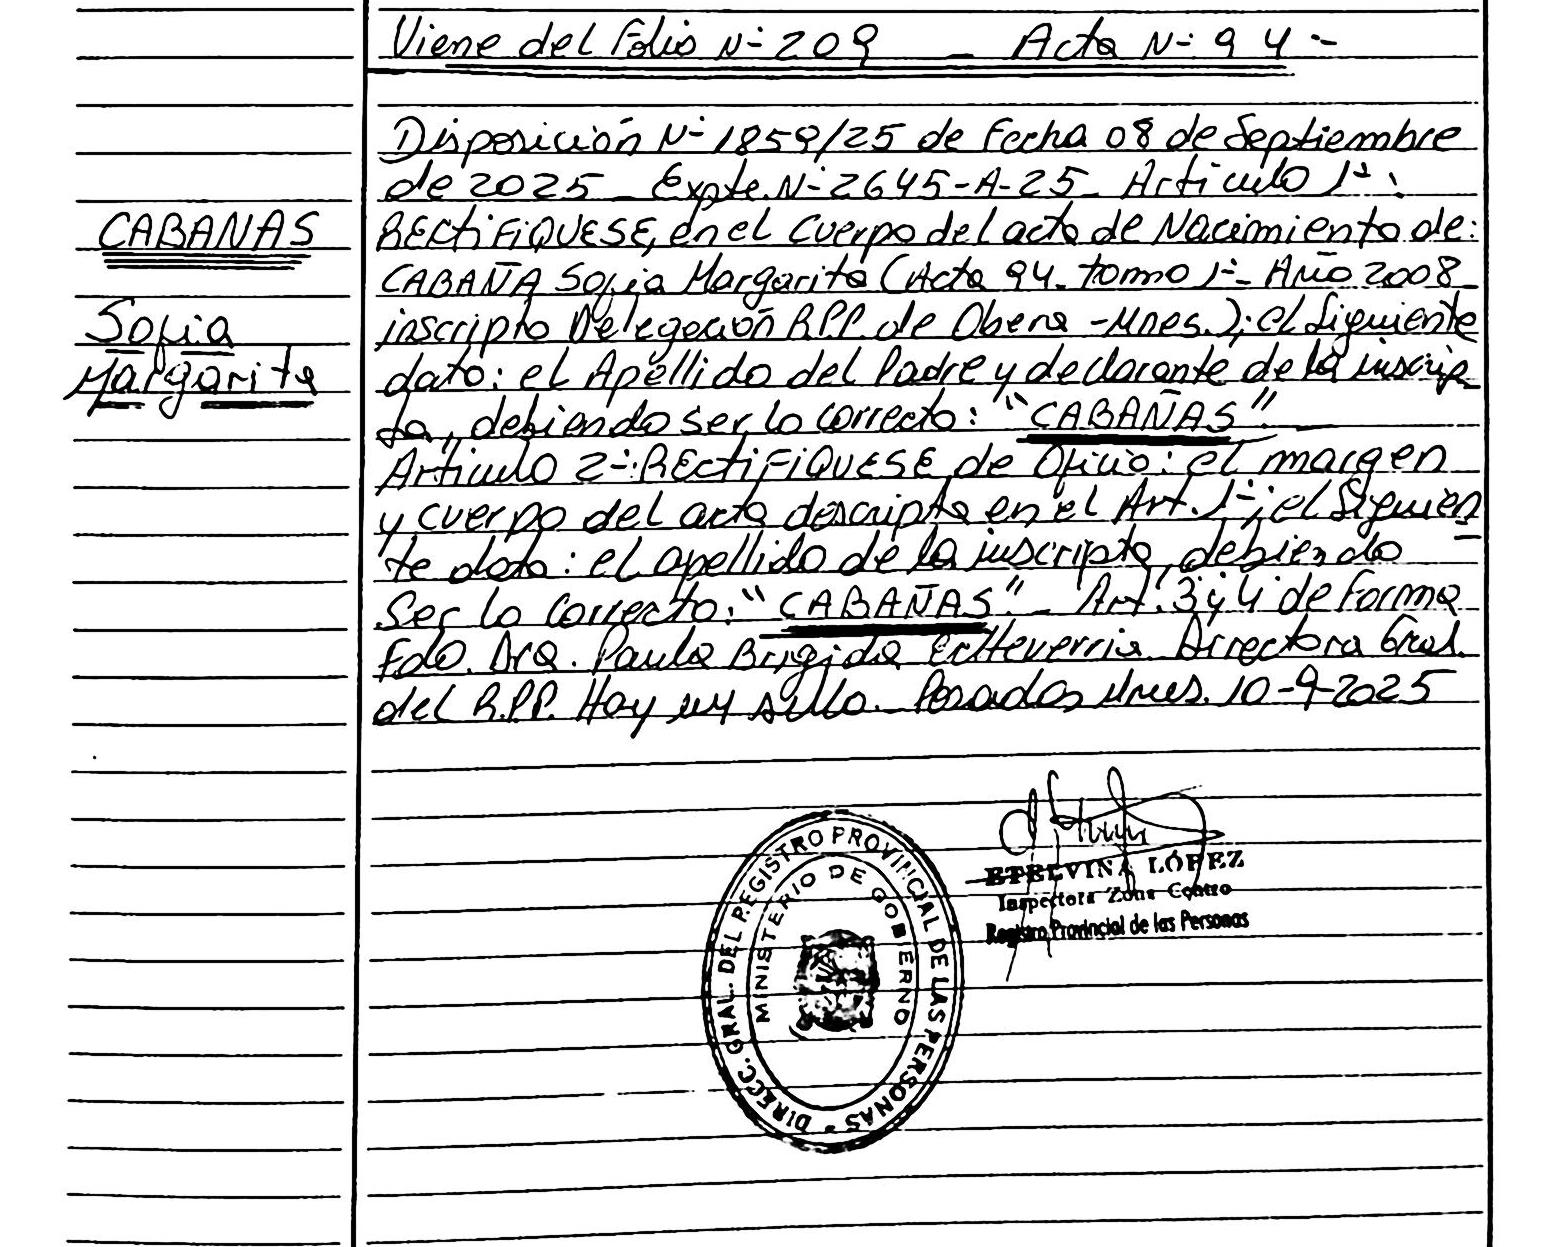 Viene del Folio N° 209 _ Acta N° 94.-
Disposición N° 1859/25 de Fecha 08 de Septiembre
de 2025 _ Expte. N° 2645-A-25_ Articulo 1°:
CABANAS
RECTIFIQUESE, en el Cuerpo del acta de Nacimiento de:
CABAÑA Sofia Margarita (Acta 94_ tomo 1°_ Año 2008_
Sofia
inscripta Delegación R.P.P. de Obera -Mnes.); el Siguiente
Margarita
dato: el Apellido del Padre y declarante de la inscrip
ta, debiendo ser lo correcto: "CABAÑAS"._
Articulo 2°: RECTIFIQUESE de Oficio: el margen
y cuerpo del acta descripta en el Art. 1°; el Siguien
te dato: el apellido de la inscripta, debiendo
Ser lo correcto: "CABAÑAS"_ Art. 3 y 4 de Forma
Fdo. Dra. Paula Brigida Echeverria Directora Gral.
del R.P.P. Hay un sello_ Posadas Mnes. 10-9-2025
DIRECC. GRAL. DEL REGISTRO PROVINCIAL DE LAS PERSONAS -
MINISTERIO DE GOBIERNO
ETELVINA LÓPEZ
Inspectora Zona Centro
Registro Provincial de las Personas